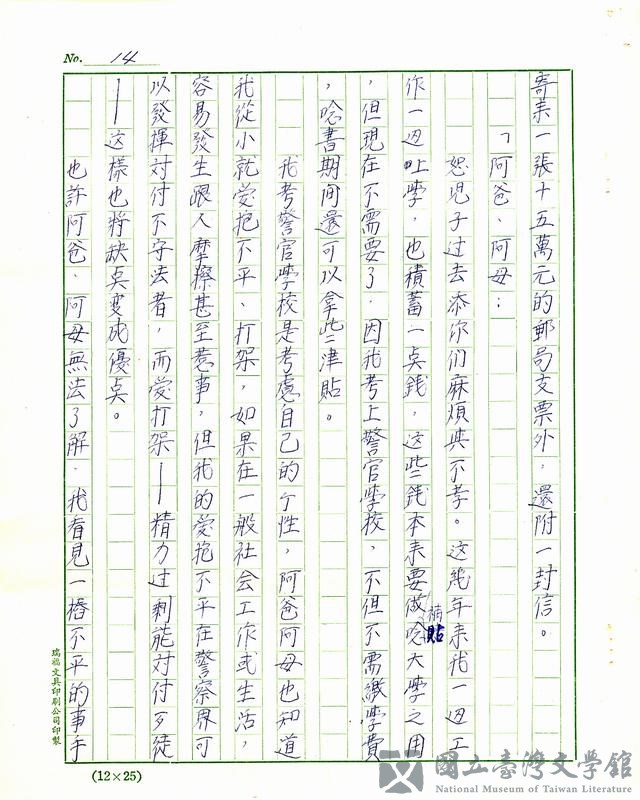 No. 14
寄来一張十五萬元的郵局支票外，還附一封信。
「阿爸、阿母：
恕児子过去添你们麻煩與不孝。这几年来我一边工
作一边上學，也積蓄一点錢，这些錢本来要做唸大學之用
補貼
，但現在不需要了．因我考上警官學校，不但不需繳學費
，唸書期间還可以拿些津貼。
我考警官學校是考慮自己的个性，阿爸阿母也知道
我從小就爱抱不平、打架，如果在一般社会工作或生活，
容易發生跟人摩擦甚至惹事，但我的爱抱不平在警察界可
以發揮对付不守法者，而爱打架——精力过剩能对付歹徒
——这樣也将缺点变成優点。
也許阿爸、阿母無法了解．我看見一樁不平的事手
瑞福文具印刷公司印製
(12×25)
國立臺灣文學館
National Museum of Taiwan Literature